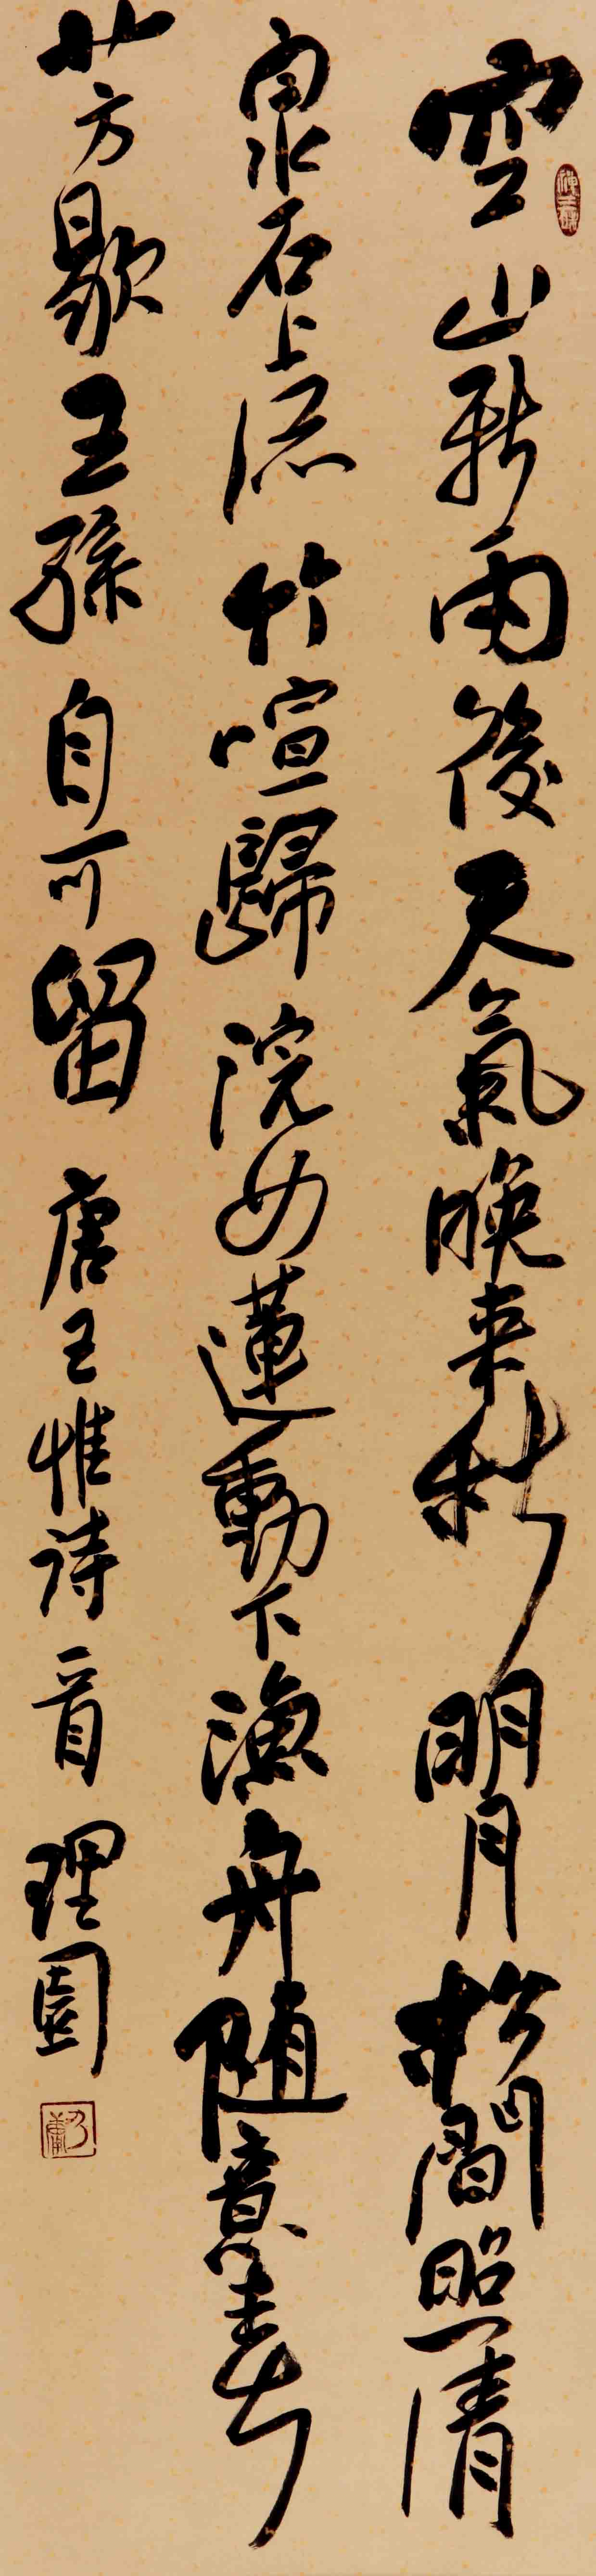 空山新雨後天氣晚来秋明月松間照清
泉石上流竹喧歸浣女蓮動下漁舟随意春
芳歇王孫自可留 唐王惟诗一首 理園